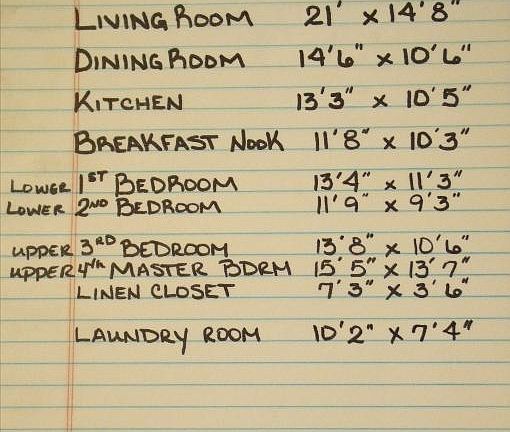 LIVING ROOM 21' x 14'8"
DINING ROOM 14'6" x 10'6"
KITCHEN 13'3" x 10'5"
BREAKFAST NOOK 11'8" x 10'3"
LOWER 1ST BEDROOM 13'4" x 11'3"
LOWER 2ND BEDROOM 11'9" x 9'3"
UPPER 3RD BEDROOM 13'8" x 10'6"
UPPER 4th MASTER BDRM 15'5" x 13'7"
LINEN CLOSET 7'3" x 3'6"
LAUNDRY ROOM 10'2" x 7'4"